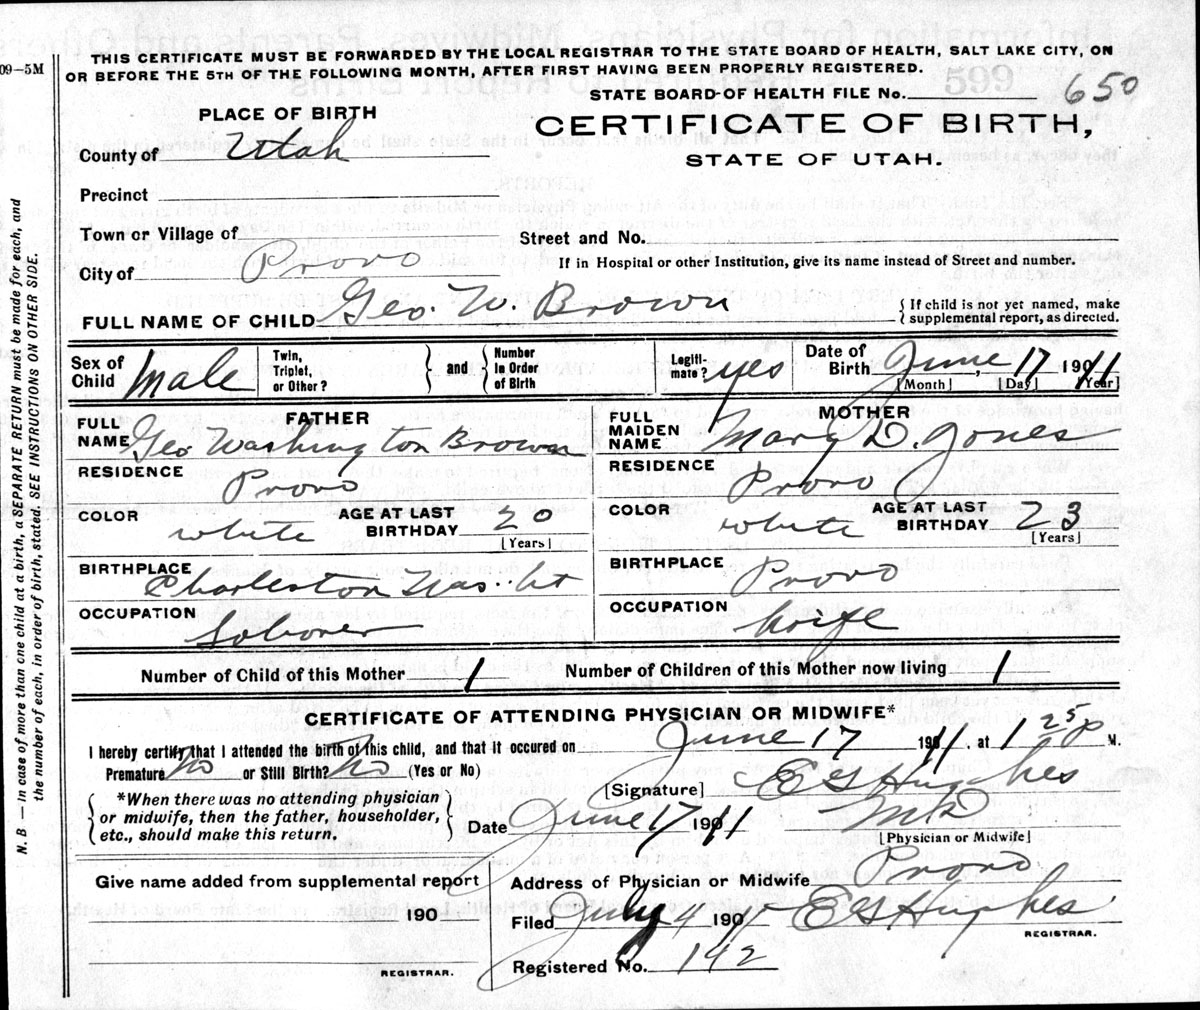 09–5M
THIS CERTIFICATE MUST BE FORWARDED BY THE LOCAL REGISTRAR TO THE STATE BOARD OF HEALTH, SALT LAKE CITY, ON
OR BEFORE THE 5TH OF THE FOLLOWING MONTH, AFTER FIRST HAVING BEEN PROPERLY REGISTERED.
STATE BOARD OF HEALTH FILE No. 650
PLACE OF BIRTH
CERTIFICATE OF BIRTH,
STATE OF UTAH.
County of Utah
Precinct
Town or Village of
Street and No.
City of Provo
If in Hospital or other Institution, give its name instead of Street and number.
FULL NAME OF CHILD Geo. W. Brown
{ If child is not yet named, make
supplemental report, as directed.
Sex of Child Male
Twin, Triplet, or Other?
and
Number In Order of Birth
Legiti-mate? yes
Date of Birth June, 17 1911
[Month] [Day] [Year]
FATHER
FULL NAME Geo Washington Brown
RESIDENCE Provo
COLOR white
AGE AT LAST BIRTHDAY 20
[Years]
BIRTHPLACE Charleston Was. Ut
OCCUPATION
MOTHER
FULL MAIDEN NAME Mary D. Jones
RESIDENCE Provo
COLOR white
AGE AT LAST BIRTHDAY 23
[Years]
BIRTHPLACE Provo
OCCUPATION
Number of Child of this Mother 1
Number of Children of this Mother now living 1
CERTIFICATE OF ATTENDING PHYSICIAN OR MIDWIFE*
I hereby certify that I attended the birth of this child, and that it occured on June 17 1911, at 1 25 P M.
Premature No or Still Birth? No (Yes or No)
*When there was no attending physician
or midwife, then the father, householder,
etc., should make this return.
[Signature] E G Hughes
MD
Date June 17 1911
[Physician or Midwife]
Give name added from supplemental report
190
REGISTRAR.
Address of Physician or Midwife Provo
Filed July 4 1911 E G Hughes
REGISTRAR.
Registered No. 142
N. B.—In case of more than one child at a birth, a SEPARATE RETURN must be made for each, and
the number of each, in order of birth, stated. SEE INSTRUCTIONS ON OTHER SIDE.